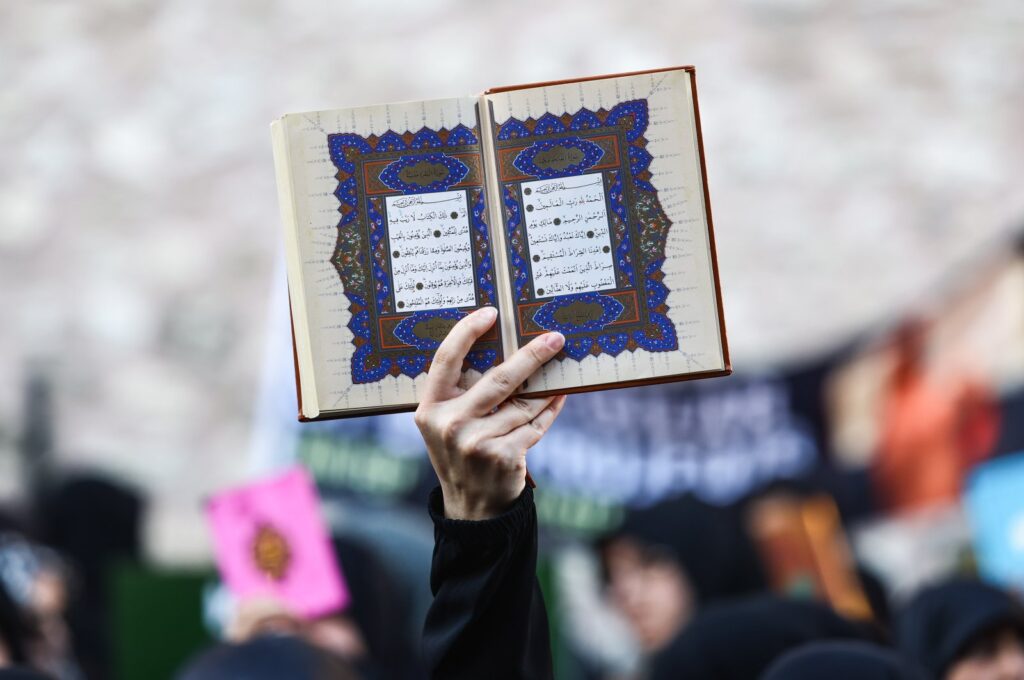 بِسْمِ اللّٰهِ الرَّحْمٰنِ الرَّحِيمِ
اَلْحَمْدُ لِلّٰهِ رَبِّ الْعَالَمِينَ
الرَّحْمٰنِ الرَّحِيمِ مَالِكِ يَوْمِ
الدِّينِ اِيَّاكَ نَعْبُدُ وَاِيَّاكَ نَسْتَعِينُ
اِهْدِنَا الصِّرَاطَ الْمُسْتَقِيمَ
صِرَاطَ الَّذِينَ اَنْعَمْتَ عَلَيْهِمْ غَيْرِ
الْمَغْضُوبِ عَلَيْهِمْ وَلَا الضَّالِّينَ
بِسْمِ اللّٰهِ الرَّحْمٰنِ الرَّحِيمِ
الٓمٓ ذٰلِكَ الْكِتَابُ لَا رَيْبَ فِيهِ
هُدًى لِلْمُتَّقِينَ الَّذِينَ يُؤْمِنُونَ بِالْغَيْبِ
وَيُقِيمُونَ الصَّلٰوةَ وَمِمَّا رَزَقْنَاهُمْ يُنْفِقُونَ
وَالَّذِينَ يُؤْمِنُونَ بِمَا اُنْزِلَ اِلَيْكَ وَمَا اُنْزِلَ مِنْ
قَبْلِكَ وَبِالْاٰخِرَةِ هُمْ يُوقِنُونَ اُولٰئِكَ عَلٰى
هُدًى مِنْ رَبِّهِمْ وَاُولٰئِكَ هُمُ الْمُفْلِحُونَ